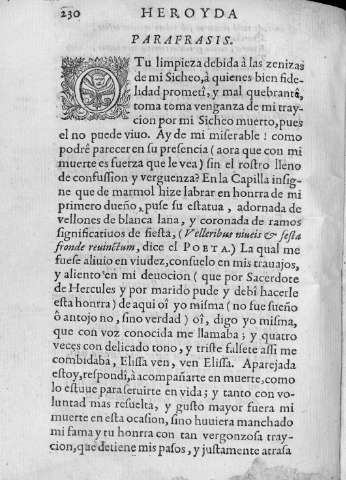 230 HEROYDA
PARAFRASIS.
O Tu limpieza debida à las zenizas
de mi Sicheo, à quienes bien fide-
lidad prometî, y mal quebrantê,
toma toma venganza de mi tray-
cion por mi Sicheo muerto, pues
el no puede viuo. Ay de mi miserable! como
podrê parecer en su presencia (aora que con mi
muerte es fuerza que le vea) sin el rostro lleno
de confussion y verguenza? En la Capilla insig-
ne que de marmol hize labrar en honrra de mi
primero dueño, puse su estatua, adornada de
vellones de blanca lana, y coronada de ramos
significatiuos de fiesta, (Velleribus niueis & festa
fronde reuinctum, dice el POETA.) La qual me
fuese aliuio en viudez, consuelo en mis trauajos,
y aliento en mi deuocion (que por Sacerdote
de Hercules y por marido pude y debî hacerle
esta honrra) de aqui oî yo misma (no fue sueño
ô antojo no, sino verdad) oî, digo yo misma,
que con voz conocida me llamaba; y quatro
veces con delicado tono, y triste falsete assi me
combidaba, Elissa ven, ven Elissa. Aparejada
estoy, respondi, à acompañarte en muerte, como
lo estuue para seruirte en vida; y tanto con vo-
luntad mas resuelta, y gusto mayor fuera mi
muerte en esta ocasion, sino huuiera manchado
mi fama y tu honrra con tan vergonzosa tray-
cion, que detiene mis pasos, y justamente atrasa